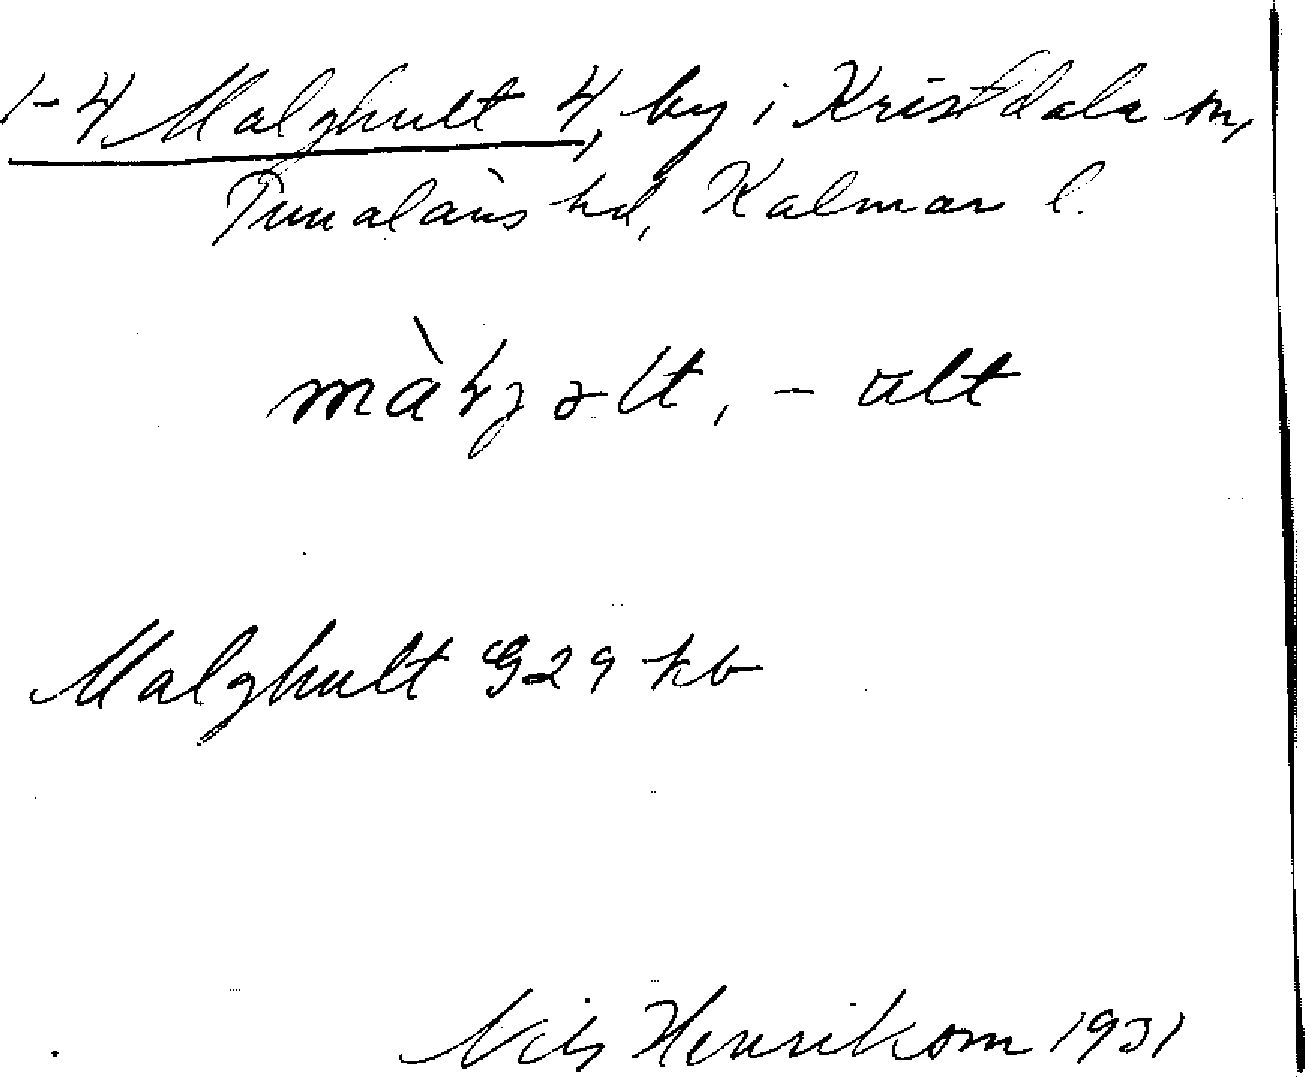 1-4 Malghult 4, by i Kristdala sn,
Tunaläns hd, Kalmar l.
Malghult G29 kb
Nils Henrikson 1931